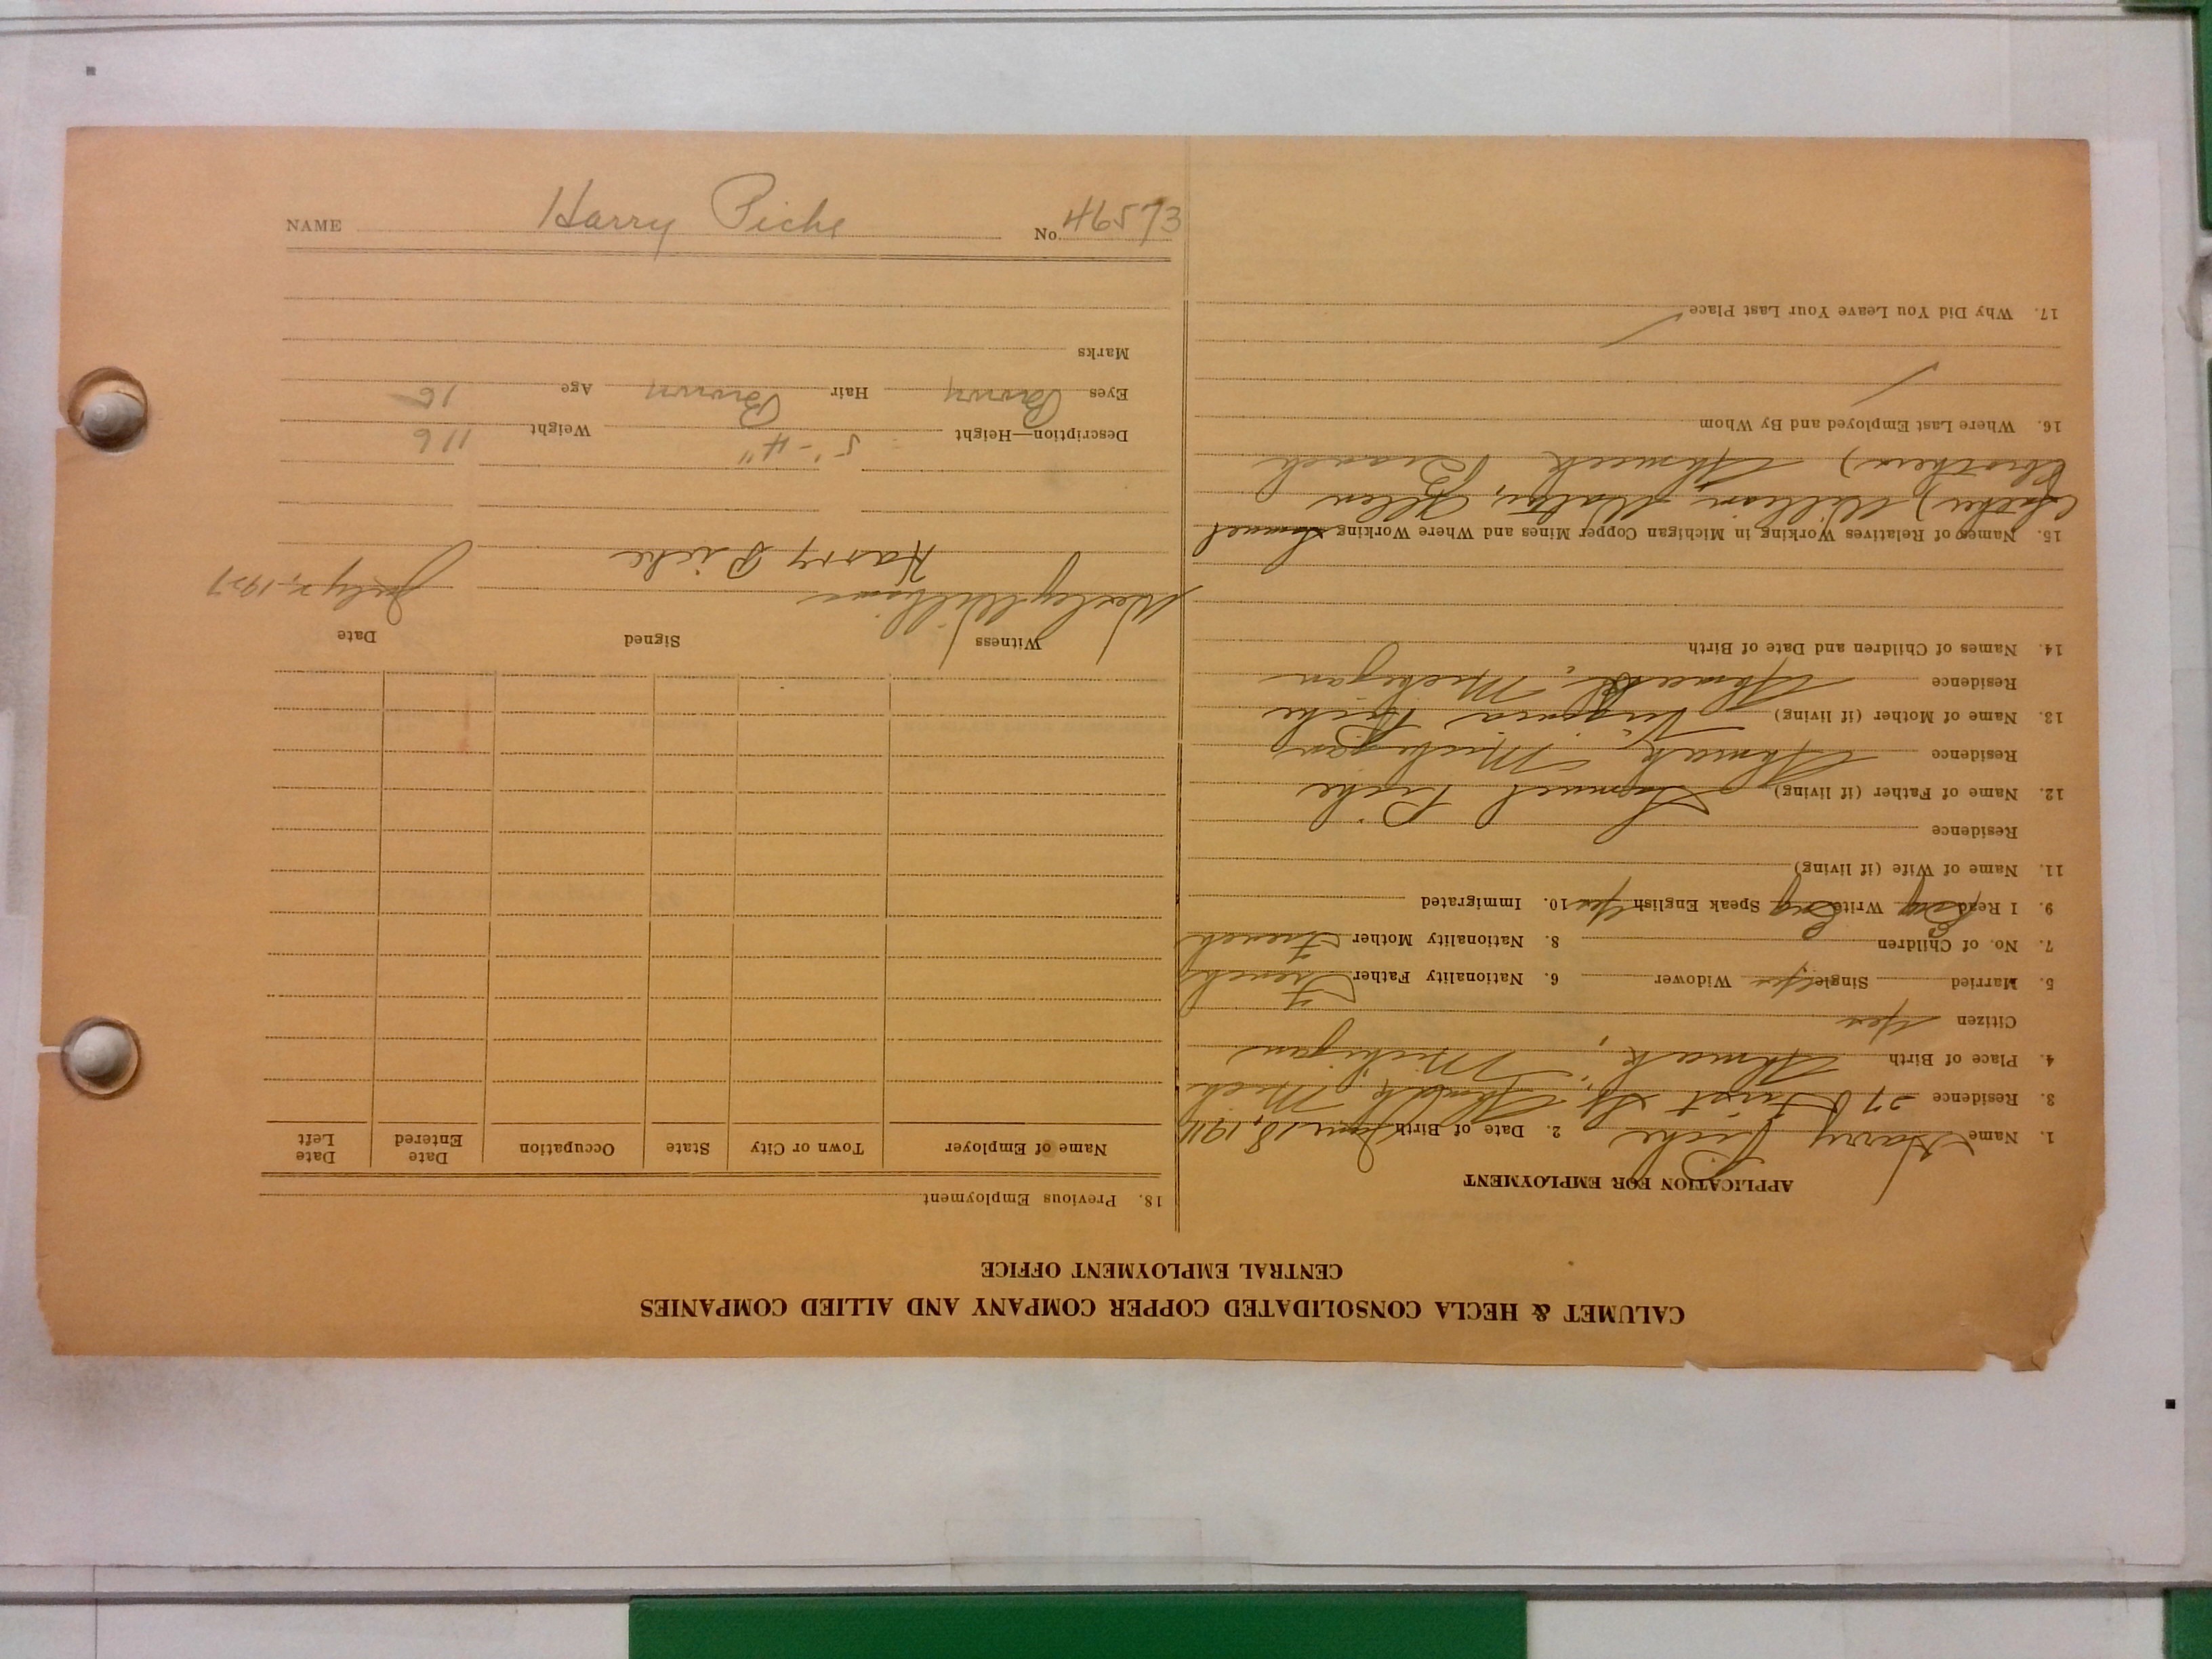 NAME Harry Piche No. 46573
CALUMET & HECLA CONSOLIDATED COPPER COMPANY AND ALLIED COMPANIES
CENTRAL EMPLOYMENT OFFICE
APPLICATION FOR EMPLOYMENT
1. Name Harry Piche 2. Date of Birth June 18, 1911
3. Residence First St. Ahmeek, Mich
4. Place of Birth Ahmeek, Michigan
Citizen Yes
5. Married Single Yes Widower 6. Nationality Father French
7. No. of Children 8. Nationality Mother French
9. I Read Eng Write Eng Speak English Yes 10. Immigrated
11. Name of Wife (if living)
Residence
12. Name of Father (if living) Samuel Piche
Residence Ahmeek, Michigan
13. Name of Mother (if living) Virginia Piche
Residence Ahmeek, Michigan
14. Names of Children and Date of Birth
15. Names of Relatives Working in Michigan Copper Mines and Where Working Samuel
(father) William, Walter, Glen
(brothers) Ahmeek Branch
16. Where Last Employed and By Whom
17. Why Did You Leave Your Last Place
18. Previous Employment
Name of Employer Town or City State Occupation Date Entered Date Left
Witness Signed Date
Wesley Williams Harry Piche July 7, 1927
Description—Height 5'-4" Weight 116
Eyes Brown Hair Brown Age 16
Marks